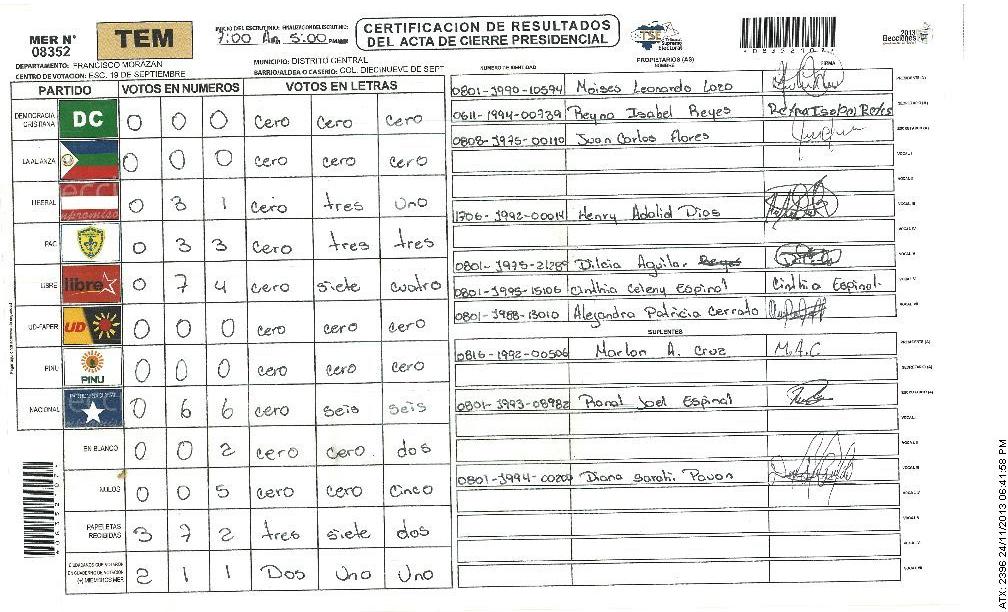 MER N° 08352
TEM
INICIO DEL ESCRUTINIO: FINALIZACION DEL ESCRUTINIO:
7:00 Am 5:00 PM
CERTIFICACION DE RESULTADOS
DEL ACTA DE CIERRE PRESIDENCIAL
TSE Tribunal Supremo Electoral
2013 Elecciones
DEPARTAMENTO: FRANCISCO MORAZAN
MUNICIPIO: DISTRITO CENTRAL
CENTRO DE VOTACION: ESC. 19 DE SEPTIEMBRE
BARRIO/ALDEA O CASERIO: COL. DIECINUEVE DE SEPT
PARTIDO VOTOS EN NUMEROS VOTOS EN LETRAS
DEMOCRACIA CRISTIANA DC 0 0 0 cero cero cero
LA ALIANZA 0 0 0 cero cero cero
LIBERAL 0 3 1 cero tres uno
PAC 0 3 3 cero tres tres
LIBRE libre 0 7 4 cero siete cuatro
UD-FAPER UD 0 0 0 cero cero cero
PINU PINU 0 0 0 cero cero cero
NACIONAL 0 6 6 cero seis seis
EN BLANCO 0 0 2 cero cero dos
NULOS 0 0 5 cero cero cinco
PAPELETAS RECIBIDAS 3 7 2 tres siete dos
CIUDADANOS QUE VOTARON EN CUADERNO DE VOTACION (+) MIEMBROS MER 2 1 1 Dos Uno Uno
NUMERO DE IDENTIDAD PROPIETARIOS (AS) NOMBRE FIRMA
0801-1990-10594 Moises Leonardo Lozo PRESIDENTE (A)
0611-1994-00739 Reyna Isabel Reyes Reyna Isabel Reyes SECRETARIO (A)
0808-1975-00110 Juan Carlos Flores ESCRUTADOR (A)
VOCAL I
VOCAL II
1706-1992-00014 Henry Adalid Dias VOCAL III
VOCAL IV
0801-1975-21289 Dilcia Aguilar VOCAL V
0801-1995-15106 Cinthia Celeny Espinal Cinthia Espinal VOCAL VI
0801-1988-13010 Alejandra Patricia Cerrato VOCAL VII
SUPLENTES
0816-1992-00506 Marlon A. Cruz M.A.C PRESIDENTE (A)
SECRETARIO (A)
0801-1993-08982 Ronal Joel Espinal ESCRUTADOR (A)
VOCAL I
VOCAL II
0801-1994-00204 Diana Sarahi Pavon VOCAL III
VOCAL IV
VOCAL V
VOCAL VI
VOCAL VII
ATX: 2396 24/11/2013 06:41:58 PM